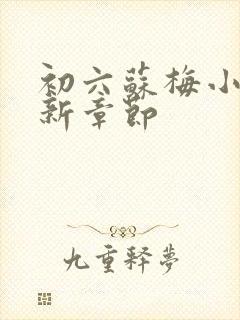 初六蘇梅小
新章節
九重釋夢